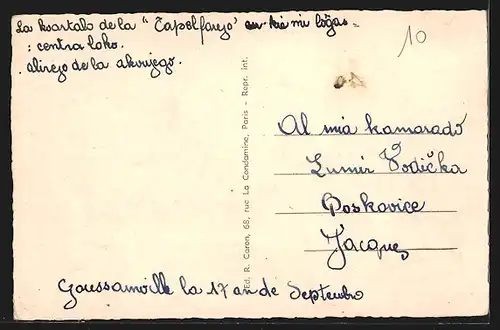 La kvartalo de la " Ĉapelfarejo" en kie mi loĝas =
: centra loko.
. alirejo de la akvujego.
10
Al mia kamarado
Lumir Vodička
Boskovice
Jacques
Goussainville la 17 an de Septembro
Ed. R. Caron, 68, rue La Condamine, Paris - Repr. int.